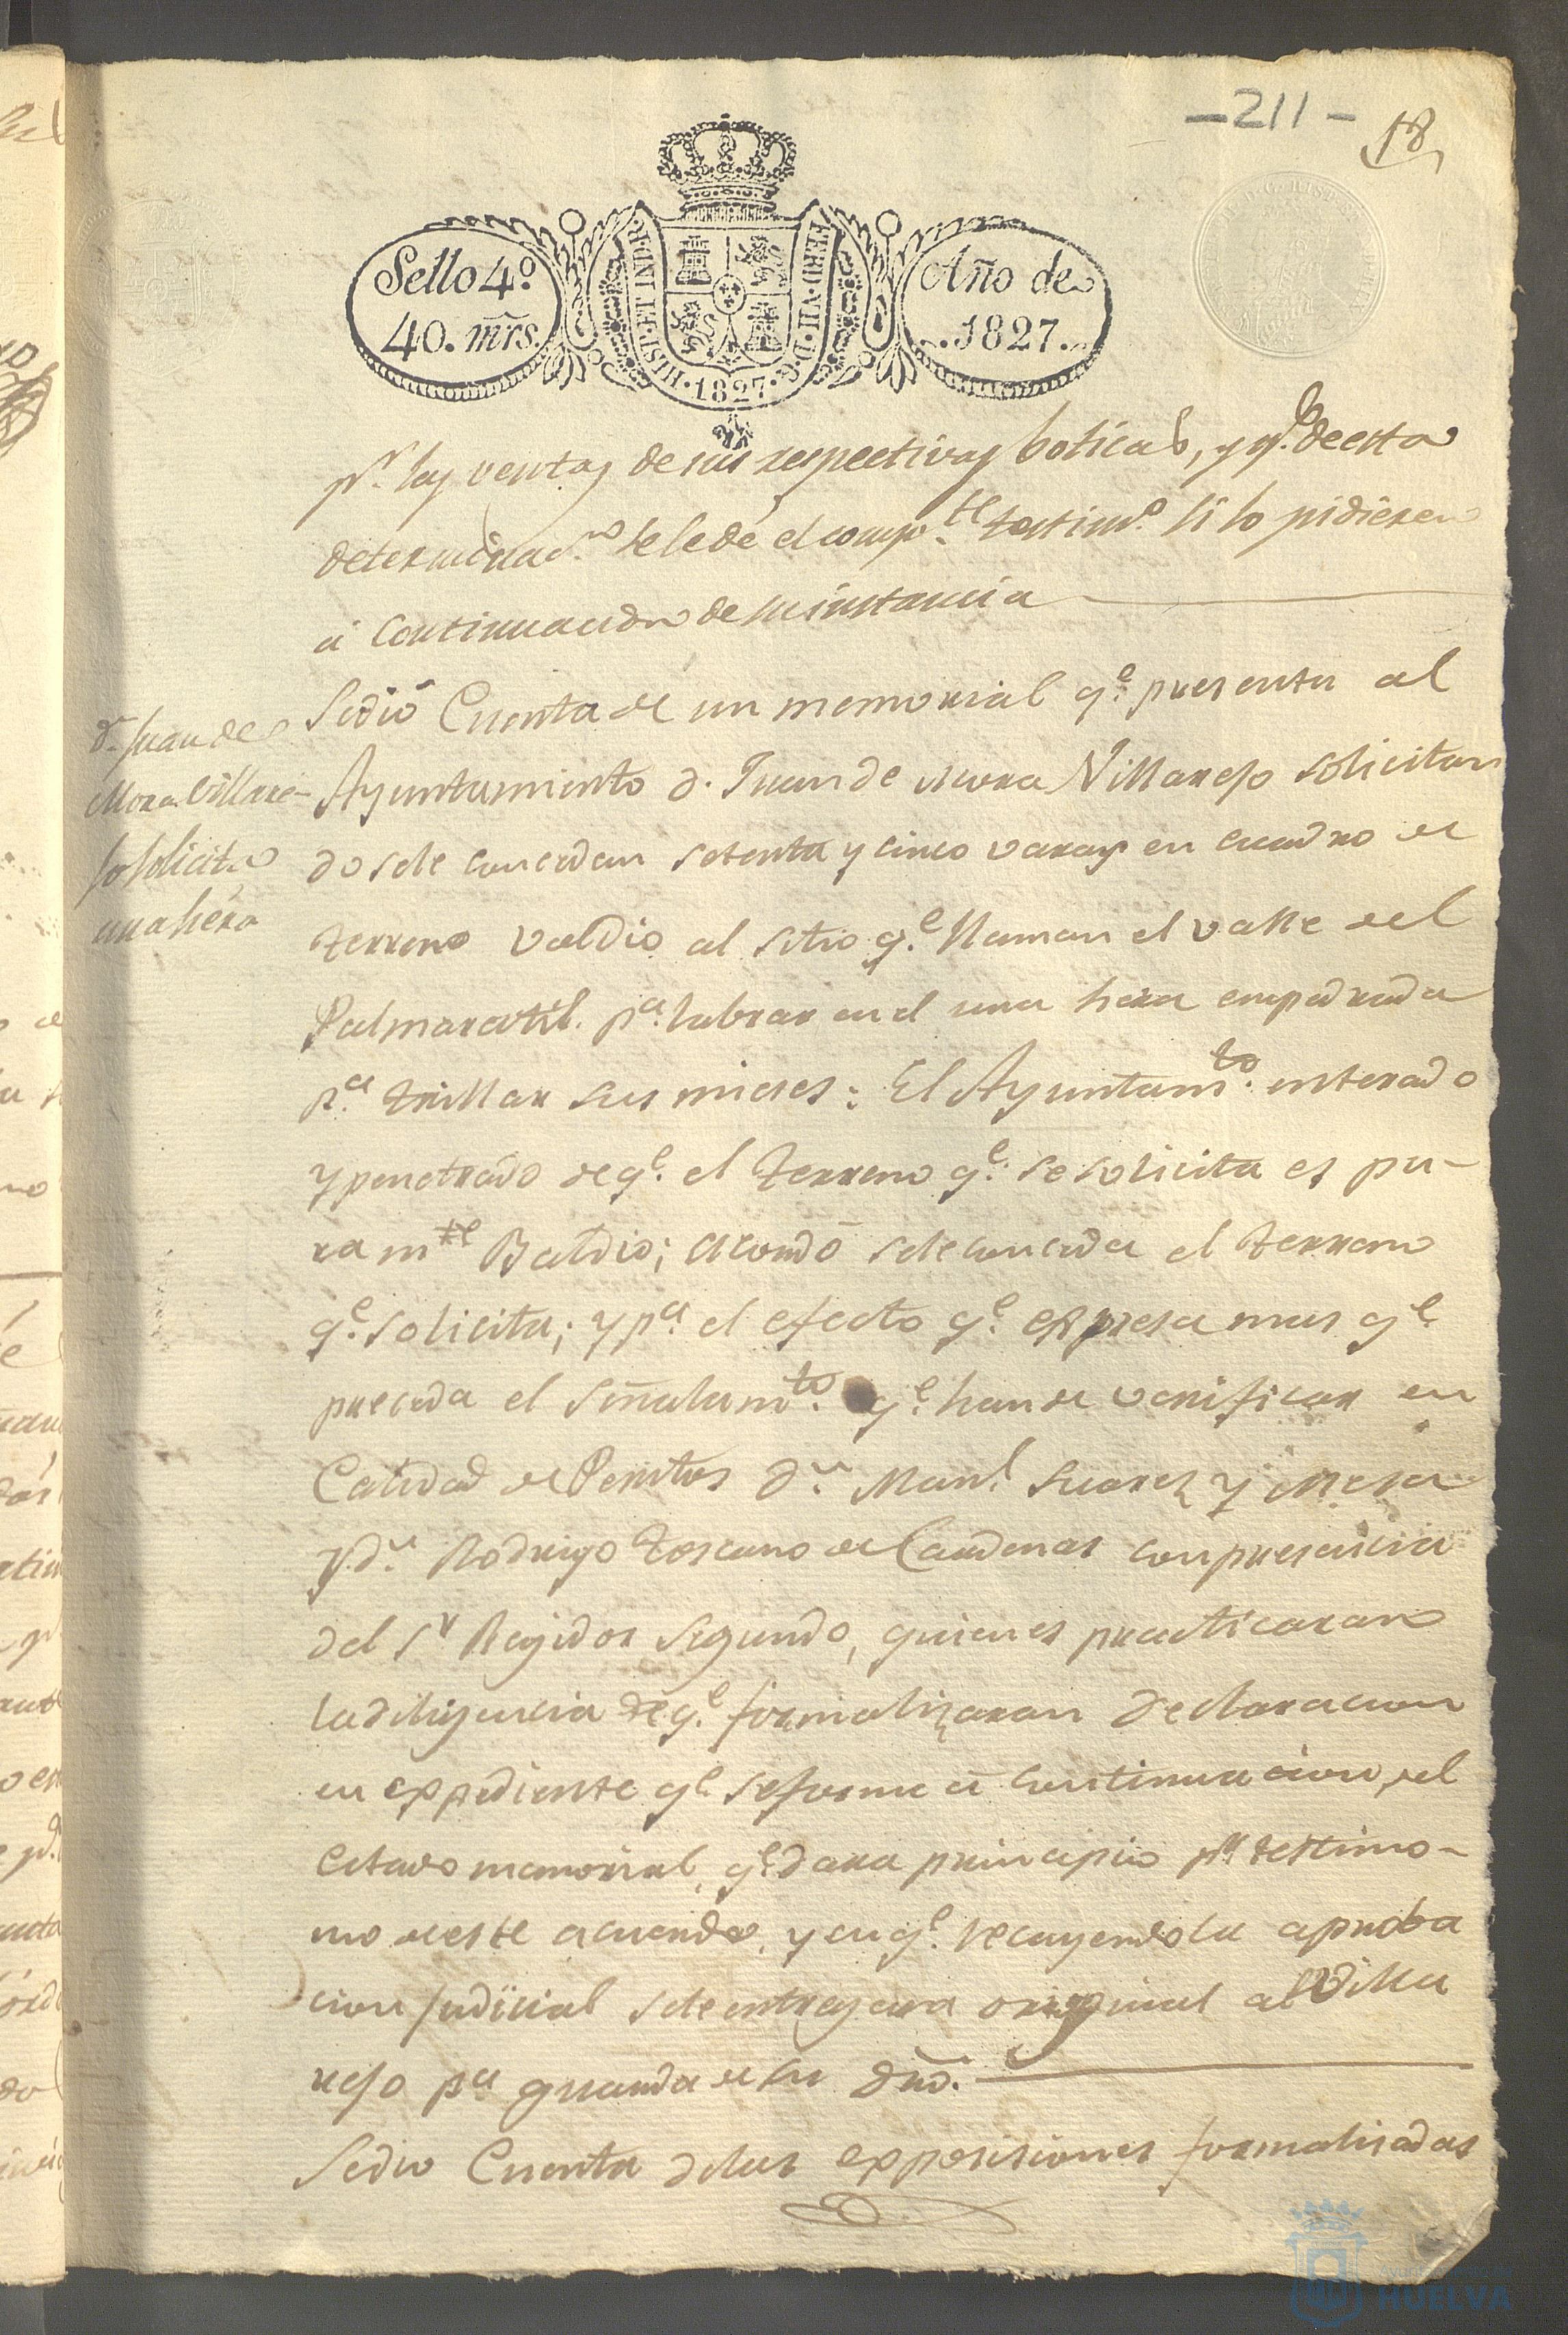 -211-
18
Sello 4º.
40. mrs.
HISP. ET IND. R.
FERD. VII. D. G.
.1827.
Año de
1827.
pr. las ventas de sus respectivas boticas, y qe. de esta
determinacn. se le dé el compte. testimo. si lo pidieren
á continuacion de su instancia
Dn. Juan de
Mora Villare-
jo solicita
una hera
Se dió Cuenta de un memorial qe. presenta al
Ayuntamiento d. Juan de Mora Villarejo solicitan
do se le concedan setenta y cinco varas en cuadro de
terreno valdio al sitio qe. llaman el valle del
pa. labrar en el una hera empedrada
pa. trillar sus mieses: El Ayuntamto. enterado
y penetrado de qe. el terreno qe. se solicita es pu-
ramte Baldio; acordó se le conceda el terreno
qe. solicita; y pa. el efecto qe. expresa mas qe.
preceda el señalamto. qe. han de verificar en
Calidad de Peritos Dn. Manl. Suarez y Mesa
y dn. Rodrigo Toscano de Cardenas con presencia
del Sr Regidor segundo, quienes practicaran
la diligencia de qe. formalizaran declaracion
en expediente qe. se forme á continuacion del
citado memorial, qe. dara principio pr. testimo-
nio de este acuerdo, y en qe. recayendo la aproba
cion judicial se le entregara original al Villa
rejo pa guarda de su dro.
Se dio Cuenta de las exposiciones formalisadas
HUELVA